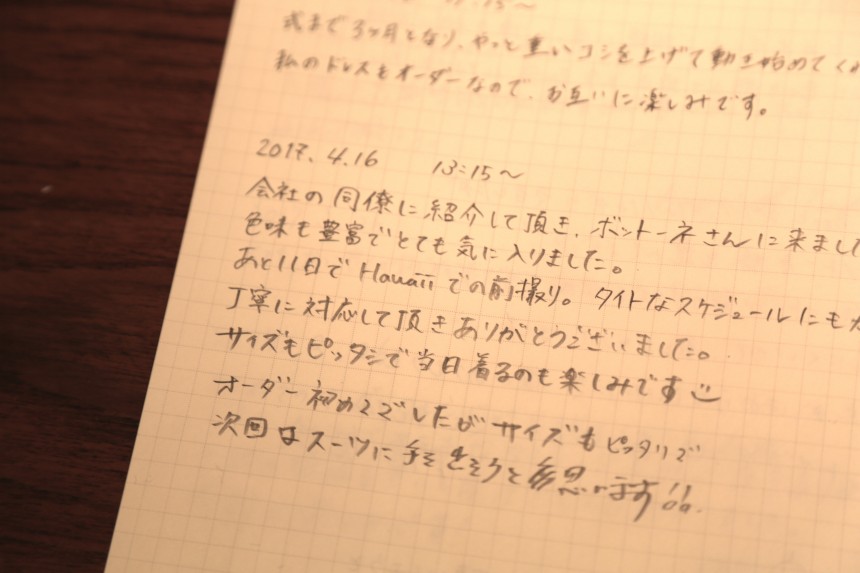 15〜
式まで3ヶ月となり、やっと重いコシを上げて動き始めてく
私のドレスもオーダーなので、お互いに楽しみです。
2017.4.16 13:15〜
会社の同僚に紹介して頂き、ボットーネさんに来ました
色味も豊富でとても気に入りました。
あと11日でHawaiiでの前撮り。タイトなスケジュールにもか
丁寧に対応して頂きありがとうございました。
サイズもピッタシで当日着るのも楽しみです
オーダー初めてでしたがサイズもピッタリで
次回はスーツに手を出そうと思います!!